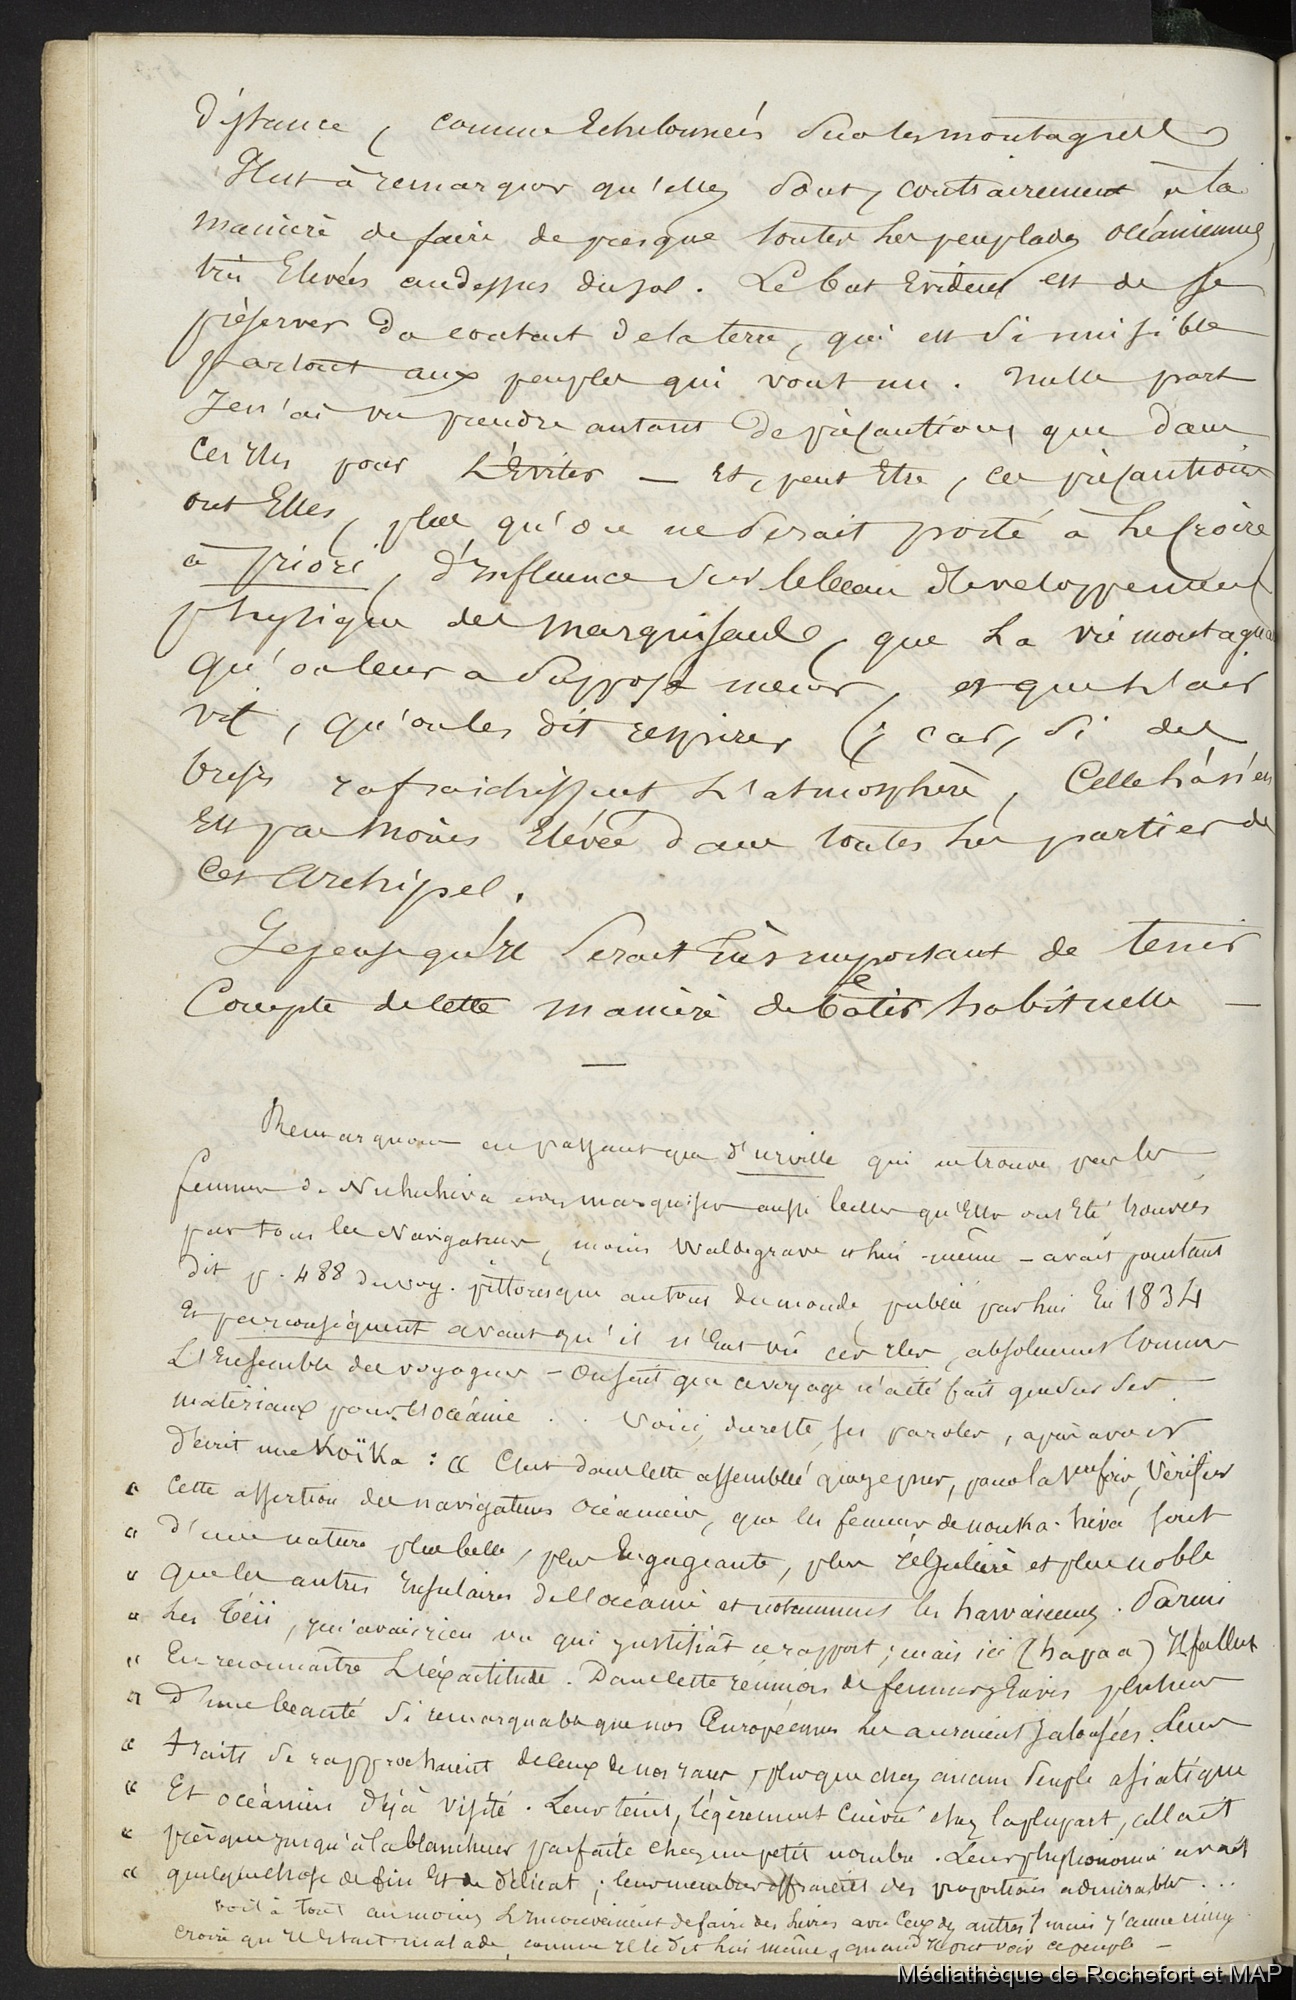 distance, comme Echelonnées sur les montagnes
Il est à remarquer qu'elles sont, contrairement à la
manière de faire de presque toutes les peuplades océaniennes,
très Elevées au dessus du sol. Le but Evident est de se
préserver du contact de la terre, qui est si nuisible
partout aux peuples qui vont nu. Nulle part
Je n'ai vu prendre autant de précautions que dans
ces Iles pour L'Eviter — Et, peut Etre, ces précautions
ont Elles, plus qu'on ne serait porté à le croire
à priori, d'Influence sur le beau développement
physique des marquisans, que la vie montagnarde
qu'on leur a supposé mener, et que l'air
vif, qu'on les dit respirer (; car, si des
brises rafraichissent L'atmosphère, Celle là n'en
Est pas moins Elévée dans toutes les parties de
cet Archipel.
Je pense qu'Il serait très important de tenir
Compte de cette manière de bâtir habituelle —
—
Remarquons en passant que d'urville qui ne trouve pas les
femmes de Nukuhiva aux marquises aussi belles qu'Elles ont Eté trouvées
par tous les Navigateurs, moins Waldegrave et lui-même — avait pourtant
dit p. 488 du voy. pittoresque autour du monde, publié par lui En 1834
et par conséquent avant qu'il n'Eut vû ces Iles, absolument comme
L'Ensemble des voyageurs — On sait que ce voyage n'a été fait que sur des
matériaux pour l'océanie .. Voici, du reste, ses paroles, après avoir
décrit une Koïka : « C'est dans cette assemblée que je pus, pour la 1ere fois, vérifier
« cette assertion des navigateurs océaniens, que les femmes de nouka-hiva sont
« d'une nature plus belle, plus Engageante, plus régulière et plus noble
« que les autres Insulaires de l'océanie et notamment les hawaiennes. Parmi
« les Téii, je n'avais rien vu qui justifiât ce rapport ; mais ici (hapaa) Il fallut
« En reconnaître L'éxactitude. Dans cette réunion de femmes, j'en vis plusieurs
« d'une beauté si remarquable que nos Européennes les auraient jalousées. Leurs
« traits se rapprochaient de ceux de nos races, plus que chez aucun peuple asiatique
« Et océanien déjà visité. Leur teint, légèrement cuivré chez la plupart, allait
« presque jusqu'à la blancheur parfaite chez un petit nombre. Leur physionomie avait
« quelque chose de fin Et de délicat ; leurs membres offraient des proportions admirables ...
voilà tout au moins L'Inconvénient de faire des livres avec ceux des autres ! mais j'aime mieux
croire qu'Il Etait malade, comme Il le dit lui même, quand Il put voir ce peuple —
Médiathèque de Rochefort et MAP